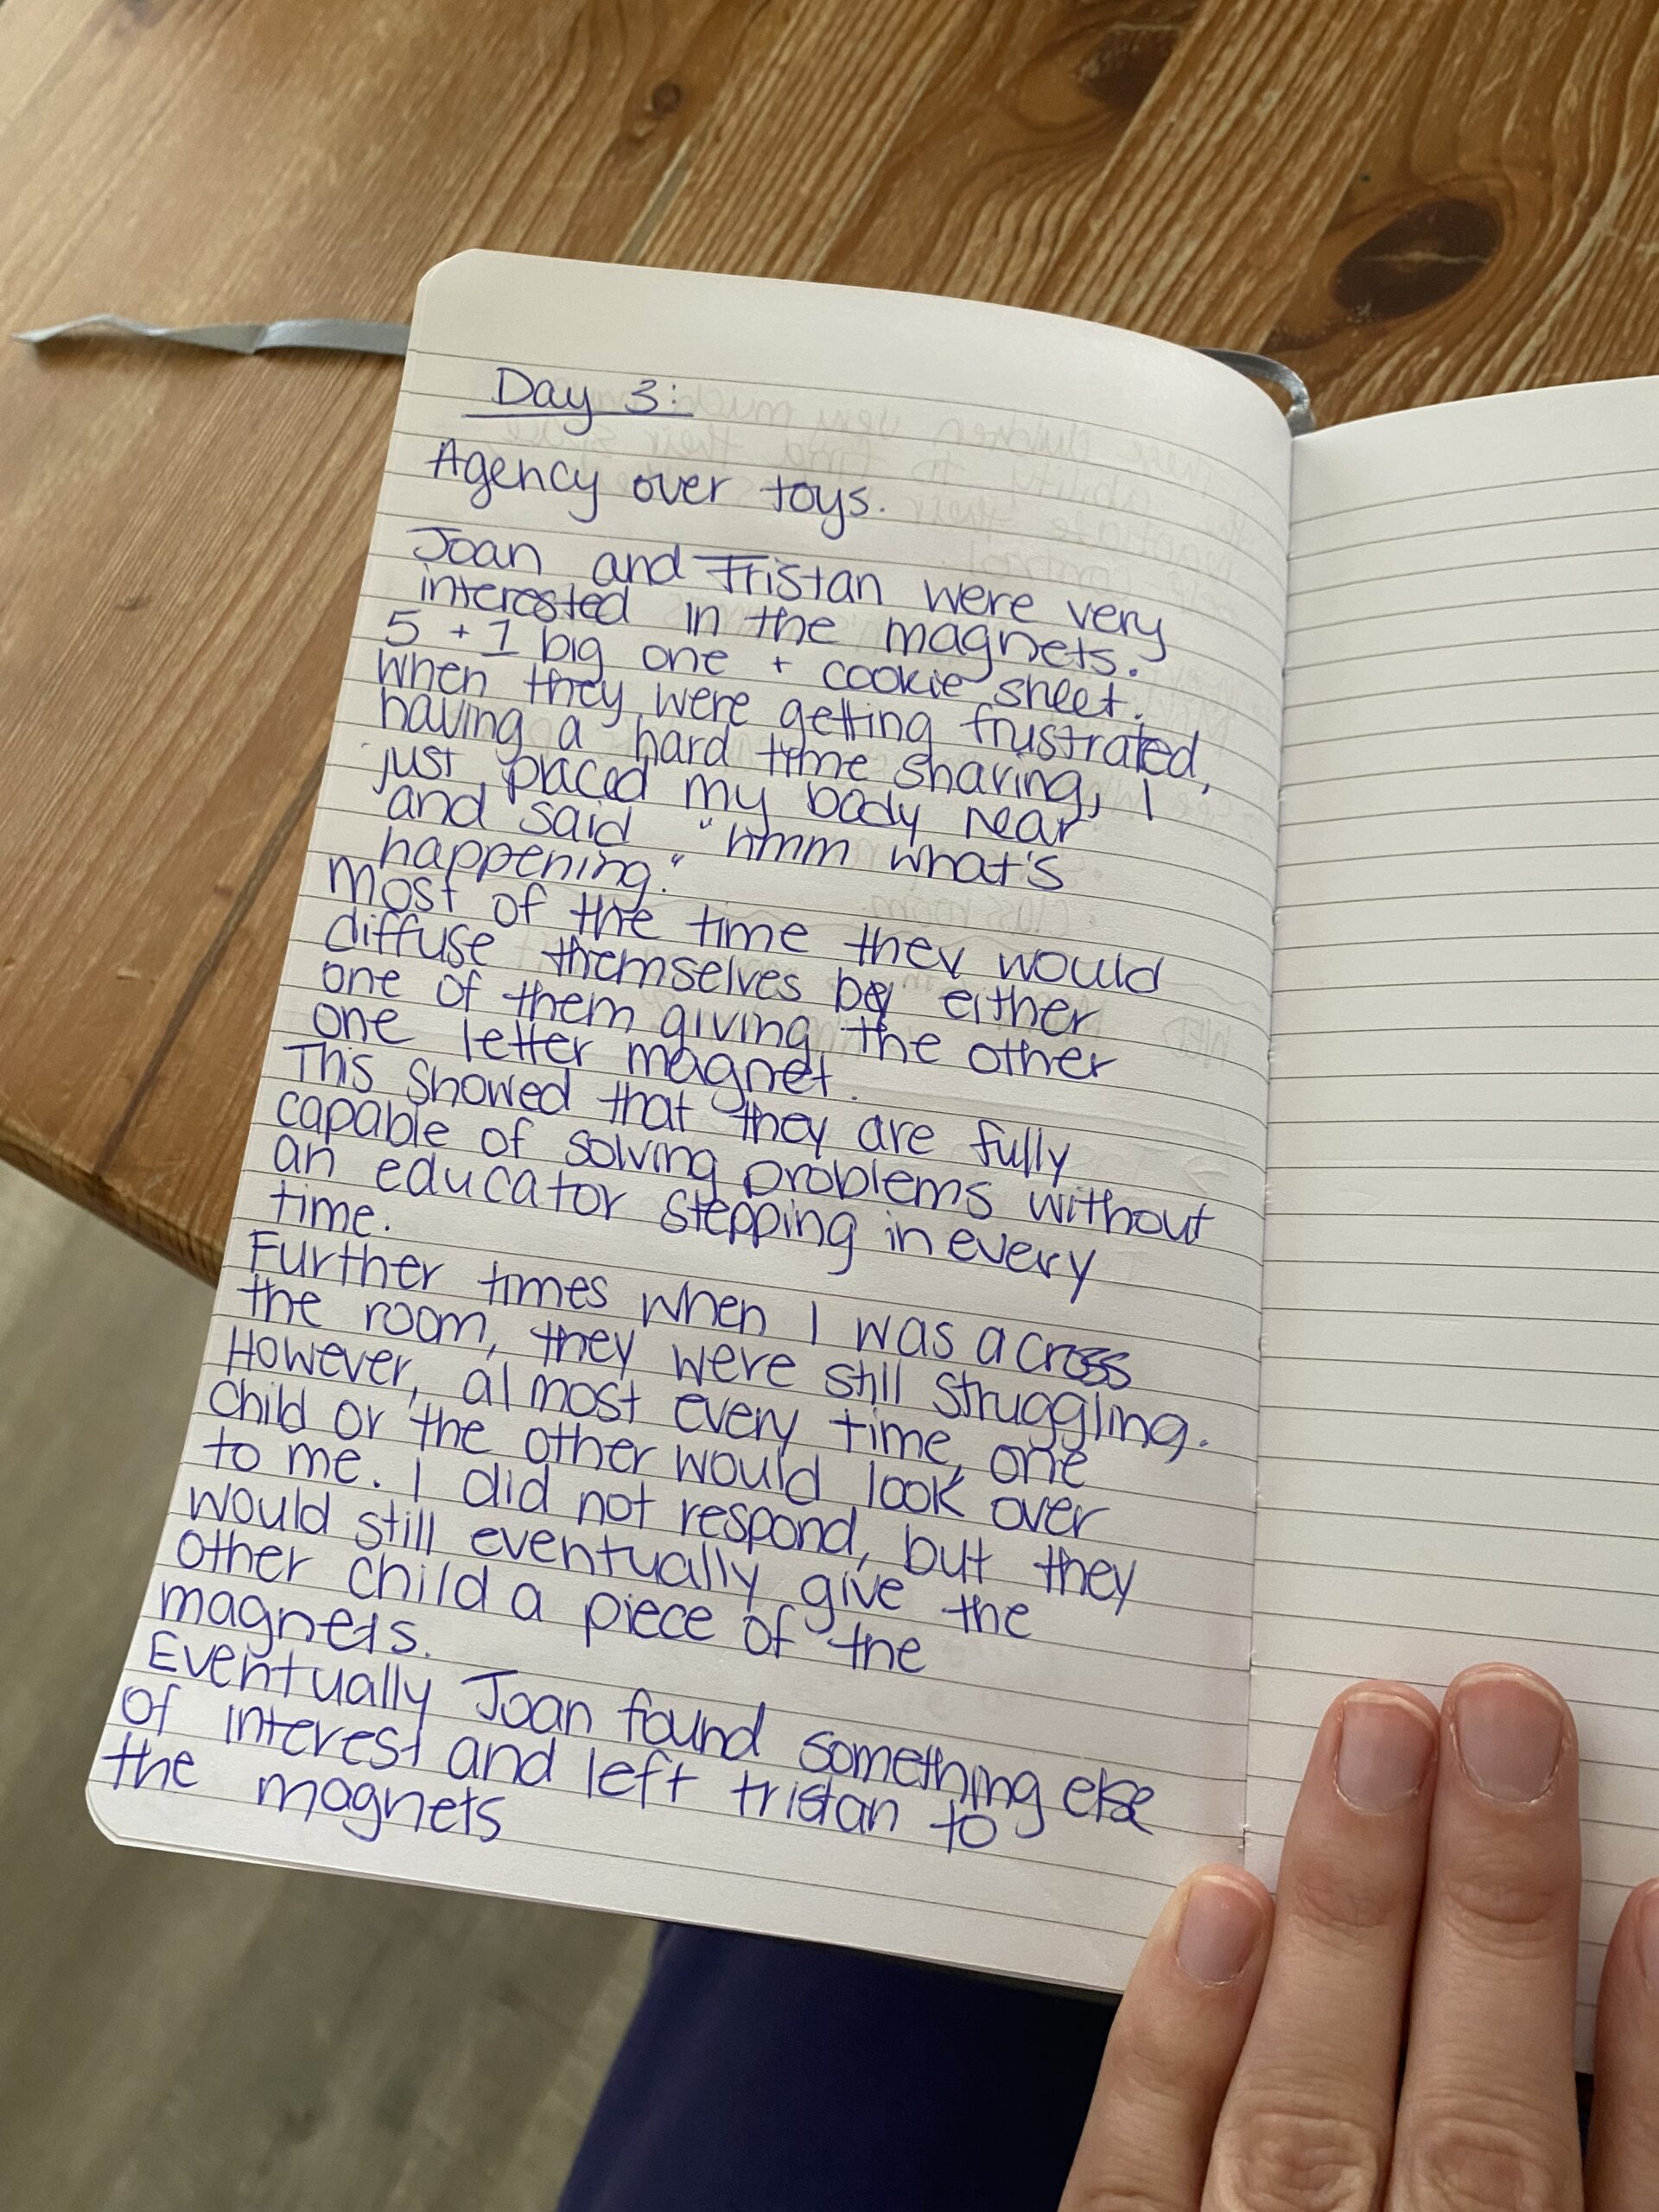 Day 3:
Agency over toys.
Joan and Tristan were very
interested in the magnets.
5 + 1 big one + cookie sheet.
When they were getting frustrated,
having a hard time sharing, I
just placed my body near
and said "hmm what's
happening."
Most of the time they would
diffuse themselves by either
one of them giving the other
one letter magnet.
This showed that they are fully
capable of solving problems without
an educator stepping in every
time.
Further times when I was across
the room, they were still struggling.
However, almost every time, one
child or the other would look over
to me. I did not respond, but they
would still eventually give the
other child a piece of the
magnets.
Eventually Joan found something else
of interest and left tristan to
the magnets